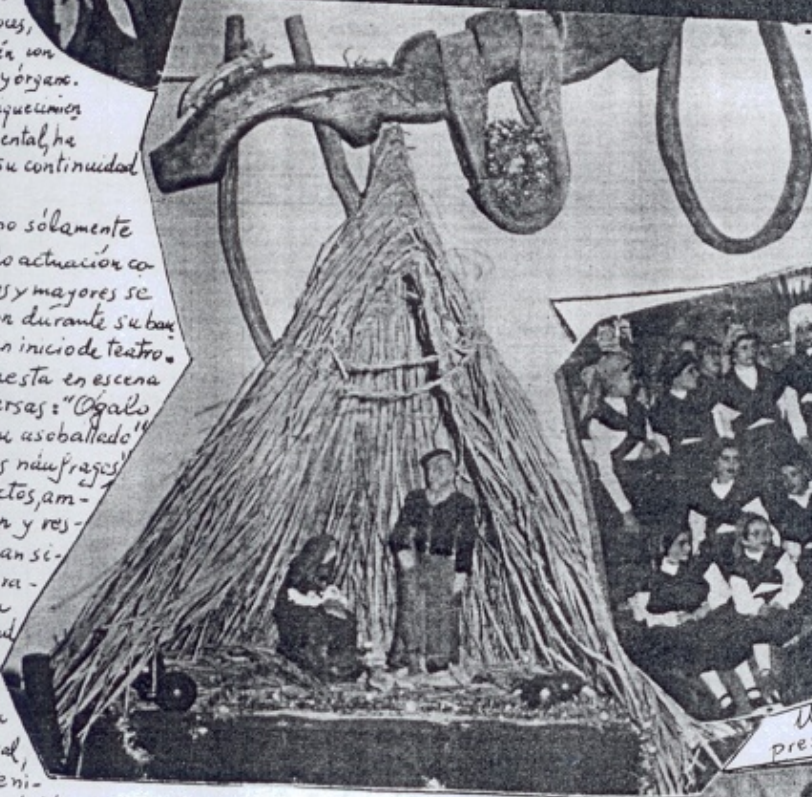 én con
y órgano.
quecimien
ental, ha
su continuidad
no sólamente
actuación co
s y mayores se
n durante su bau
n inicio de teatro.
uesta en escena
ersas: "Ogalo
asoballado"
s náufragos"
ctos, am-
n y res-
an si-
ra-
al,
eni-
pre